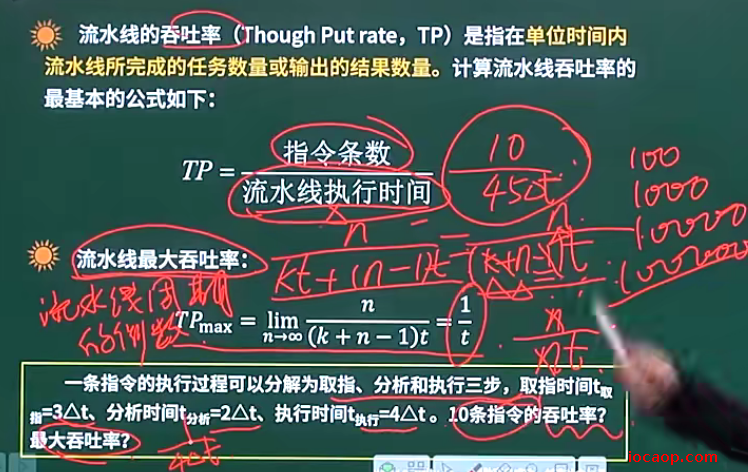 流水线的吞吐率（Though Put rate，TP）是指在单位时间内
流水线所完成的任务数量或输出的结果数量。计算流水线吞吐率的
最基本的公式如下：
TP = 指令条数 / 流水线执行时间
10 / 45△t
100
1000
10000
1000000
流水线最大吞吐率：
n / kt+(n-1)t = n / (k+n-1)t
流水线周期
的倒数
TPmax = lim n→∞ n / (k+n−1)t = 1 / t
n / n·t
一条指令的执行过程可以分解为取指、分析和执行三步，取指时间t取
指=3△t、分析时间t分析=2△t、执行时间t执行=4△t。10条指令的吞吐率？
最大吞吐率？
4△t
ioraop.com